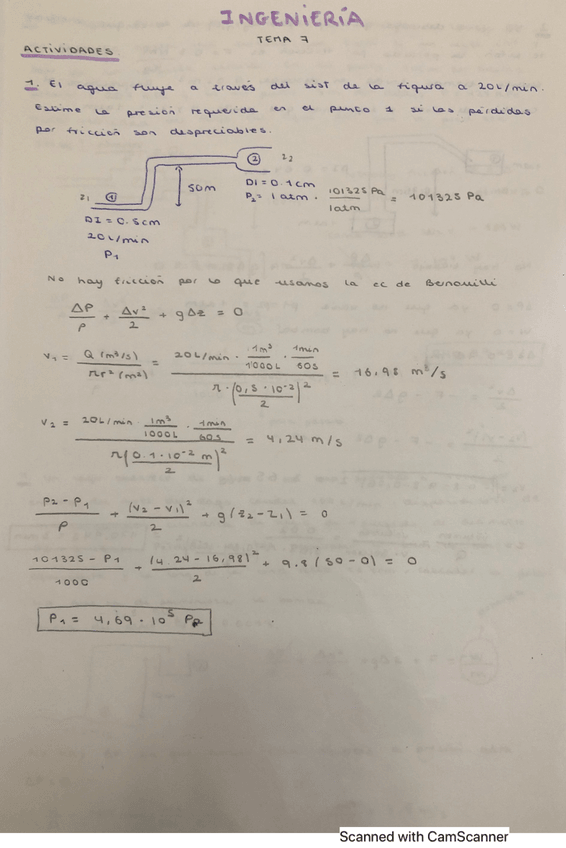 INGENIERÍA
TEMA 7
ACTIVIDADES
1. El agua fluye a través del sist de la figura a 20L/min.
Estime la presión requerida en el punto 1 si las pérdidas
por fricción son despreciables.
z1 ① 50m ② z2
DI = 0.1cm
P2 = 1 atm · 101325 Pa / 1atm = 101325 Pa
DI = 0.5cm
20L/min
P1
No hay fricción por lo que usamos la ec de Bernouilli
ΔP/ρ + Δv²/2 + gΔz = 0
v1 = Q (m³/s) / πr² (m²) = 20L/min · 1m³/1000L · 1min/60s / π · (0,5 · 10⁻²/2)² = 16,98 m³/s
v2 = 20L/min · 1m³/1000L · 1min/60s / π(0.1 · 10⁻² m/2)² = 4,24 m/s
P2 - P1 / ρ + (v2 - v1)² / 2 + g(z2 - z1) = 0
101325 - P1 / 1000 + (4.24 - 16,98)² / 2 + 9.8 (50 - 0) = 0
P1 = 4,69 · 10⁵ Pa
Scanned with CamScanner